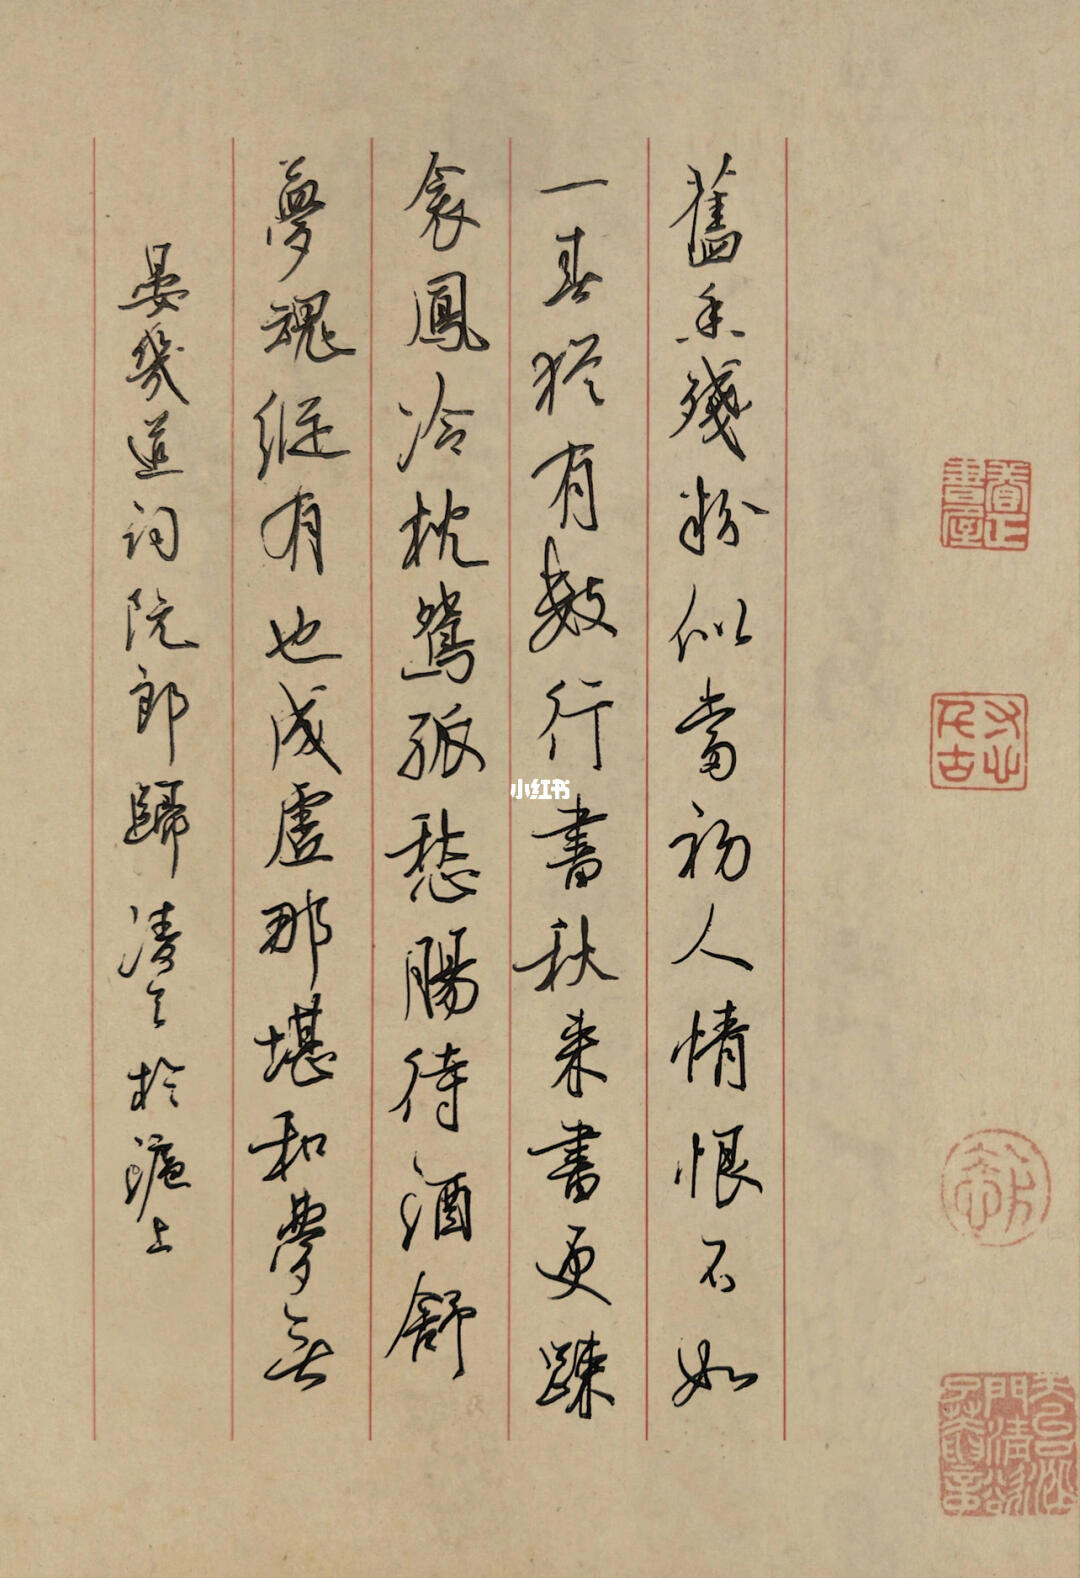 舊香殘粉似當初人情恨不如
一春猶有數行書秋来書更踈
衾鳳冷枕鴛孤愁腸待酒舒
夢魂縱有也成虛那堪和夢無
晏幾道詞阮郎歸 於滬上
小红书